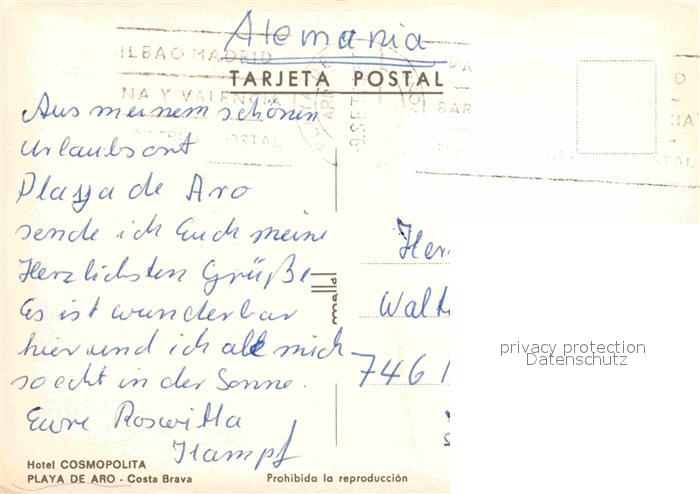 Alemania
ILBAO MADRID
TARJETA POSTAL
NA Y VALENCIA
Aus meinem schönen
Urlaubsort
Playa de Aro
sende ich Euch meine
Herzlichsten Grüße
Es ist wunderbar
hier und ich aale mich
so echt in der Sonne.
Eure Roswitta
Kampf
Her
Walt
746 1
privacy protection
Datenschutz
Hotel COSMOPOLITA
PLAYA DE ARO - Costa Brava
Prohibida la reproducción